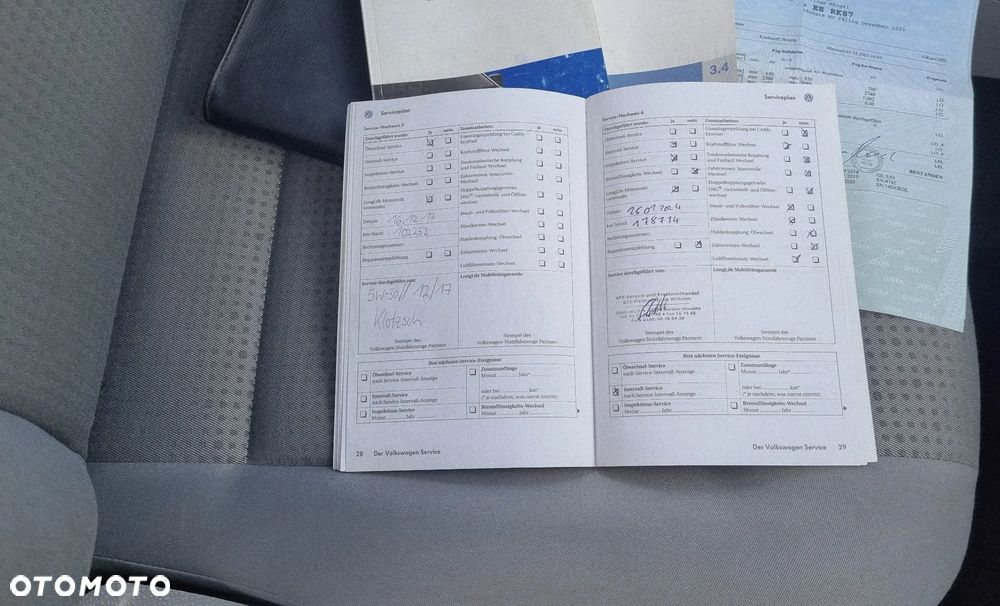 EE RK87
3.4
Serviceplan
Service-Nachweis 5
Durchgeführt wurde: ja nein Zusatzarbeiten: ja nein
Ölwechsel-Service
Gasanlagenprüfung bei Caddy EcoFuel
Intervall-Service
Kraftstofffilter-Wechsel
Inspektions-Service
Torsionselastische Kupplung und Freilauf-Wechsel
Bremsflüssigkeits-Wechsel
Zahnriemen Spannrolle-Wechsel
LongLife Motorenöl verwendet
Doppelkupplungsgetriebe DSG® Getriebeöl- und Ölfilter-Wechsel
Datum: 16.12.17
Staub- und Pollenfilter-Wechsel
km-Stand: 102253
Zündkerzen-Wechsel
Rechnungsnummer:
Haldexkupplung Ölwechsel
Reparaturempfehlung
Zahnriemen-Wechsel
Luftfiltereinsatz-Wechsel
Service durchgeführt von:
LongLife Mobilitätsgarantie
5W-30// 12/17
Klotzsch
Stempel des
Volkswagen Nutzfahrzeuge Partners
Stempel des
Volkswagen Nutzfahrzeuge Partners
Ihre nächsten Service-Ereignisse
Ölwechsel-Service
nach Service-Intervall-Anzeige
Intervall-Service
nach Service-Intervall-Anzeige
Inspektions-Service
Monat Jahr
Zusatzumfänge
Monat Jahr*
oder bei km*
(* je nachdem, was zuerst eintritt)
Bremsflüssigkeits-Wechsel
Monat Jahr
28 Der Volkswagen Service
Serviceplan
Service-Nachweis 6
Durchgeführt wurde: ja nein Zusatzarbeiten: ja nein
Ölwechsel-Service
Gasanlagenprüfung bei Caddy EcoFuel
Intervall-Service
Kraftstofffilter-Wechsel
Inspektions-Service
Torsionselastische Kupplung und Freilauf-Wechsel
Bremsflüssigkeits-Wechsel
Zahnriemen Spannrolle-Wechsel
LongLife Motorenöl verwendet
Doppelkupplungsgetriebe DSG® Getriebeöl- und Ölfilter-Wechsel
Datum:
Staub- und Pollenfilter-Wechsel
km-Stand: 178714
Zündkerzen-Wechsel
Rechnungsnummer:
Haldexkupplung Ölwechsel
Reparaturempfehlung
Zahnriemen-Wechsel
Luftfiltereinsatz-Wechsel
Service durchgeführt von:
LongLife Mobilitätsgarantie
KFZ-Service und Ersatzteilhandel
Stempel des
Volkswagen Nutzfahrzeuge Partners
Stempel des
Volkswagen Nutzfahrzeuge Partners
Ihre nächsten Service-Ereignisse
Ölwechsel-Service
nach Service-Intervall-Anzeige
Intervall-Service
nach Service-Intervall-Anzeige
Inspektions-Service
Monat Jahr
Zusatzumfänge
Monat Jahr*
oder bei km*
(* je nachdem, was zuerst eintritt)
Bremsflüssigkeits-Wechsel
Monat Jahr
Der Volkswagen Service 29
BESTANDEN
OTOMOTO